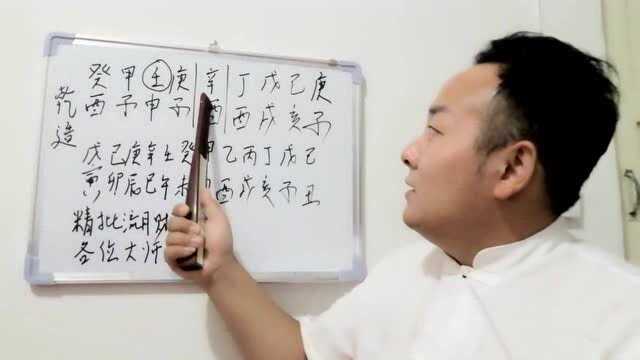 乾造
癸 甲 壬 庚 辛 丁 戊 己 庚
酉 子 申 子 酉 酉 戌 亥 子
戊 己 庚 辛 壬 癸 甲 乙 丙 丁 戊 己
寅 卯 辰 巳 午 未 酉 戌 亥 子 丑
精批流月财
各位大师